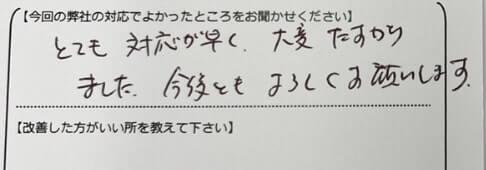 【今回の弊社の対応でよかったところをお聞かせください】
とても対応が早く、大変たすかり
ました。今後ともよろしくお願いします。
【改善した方がいい所を教えて下さい】